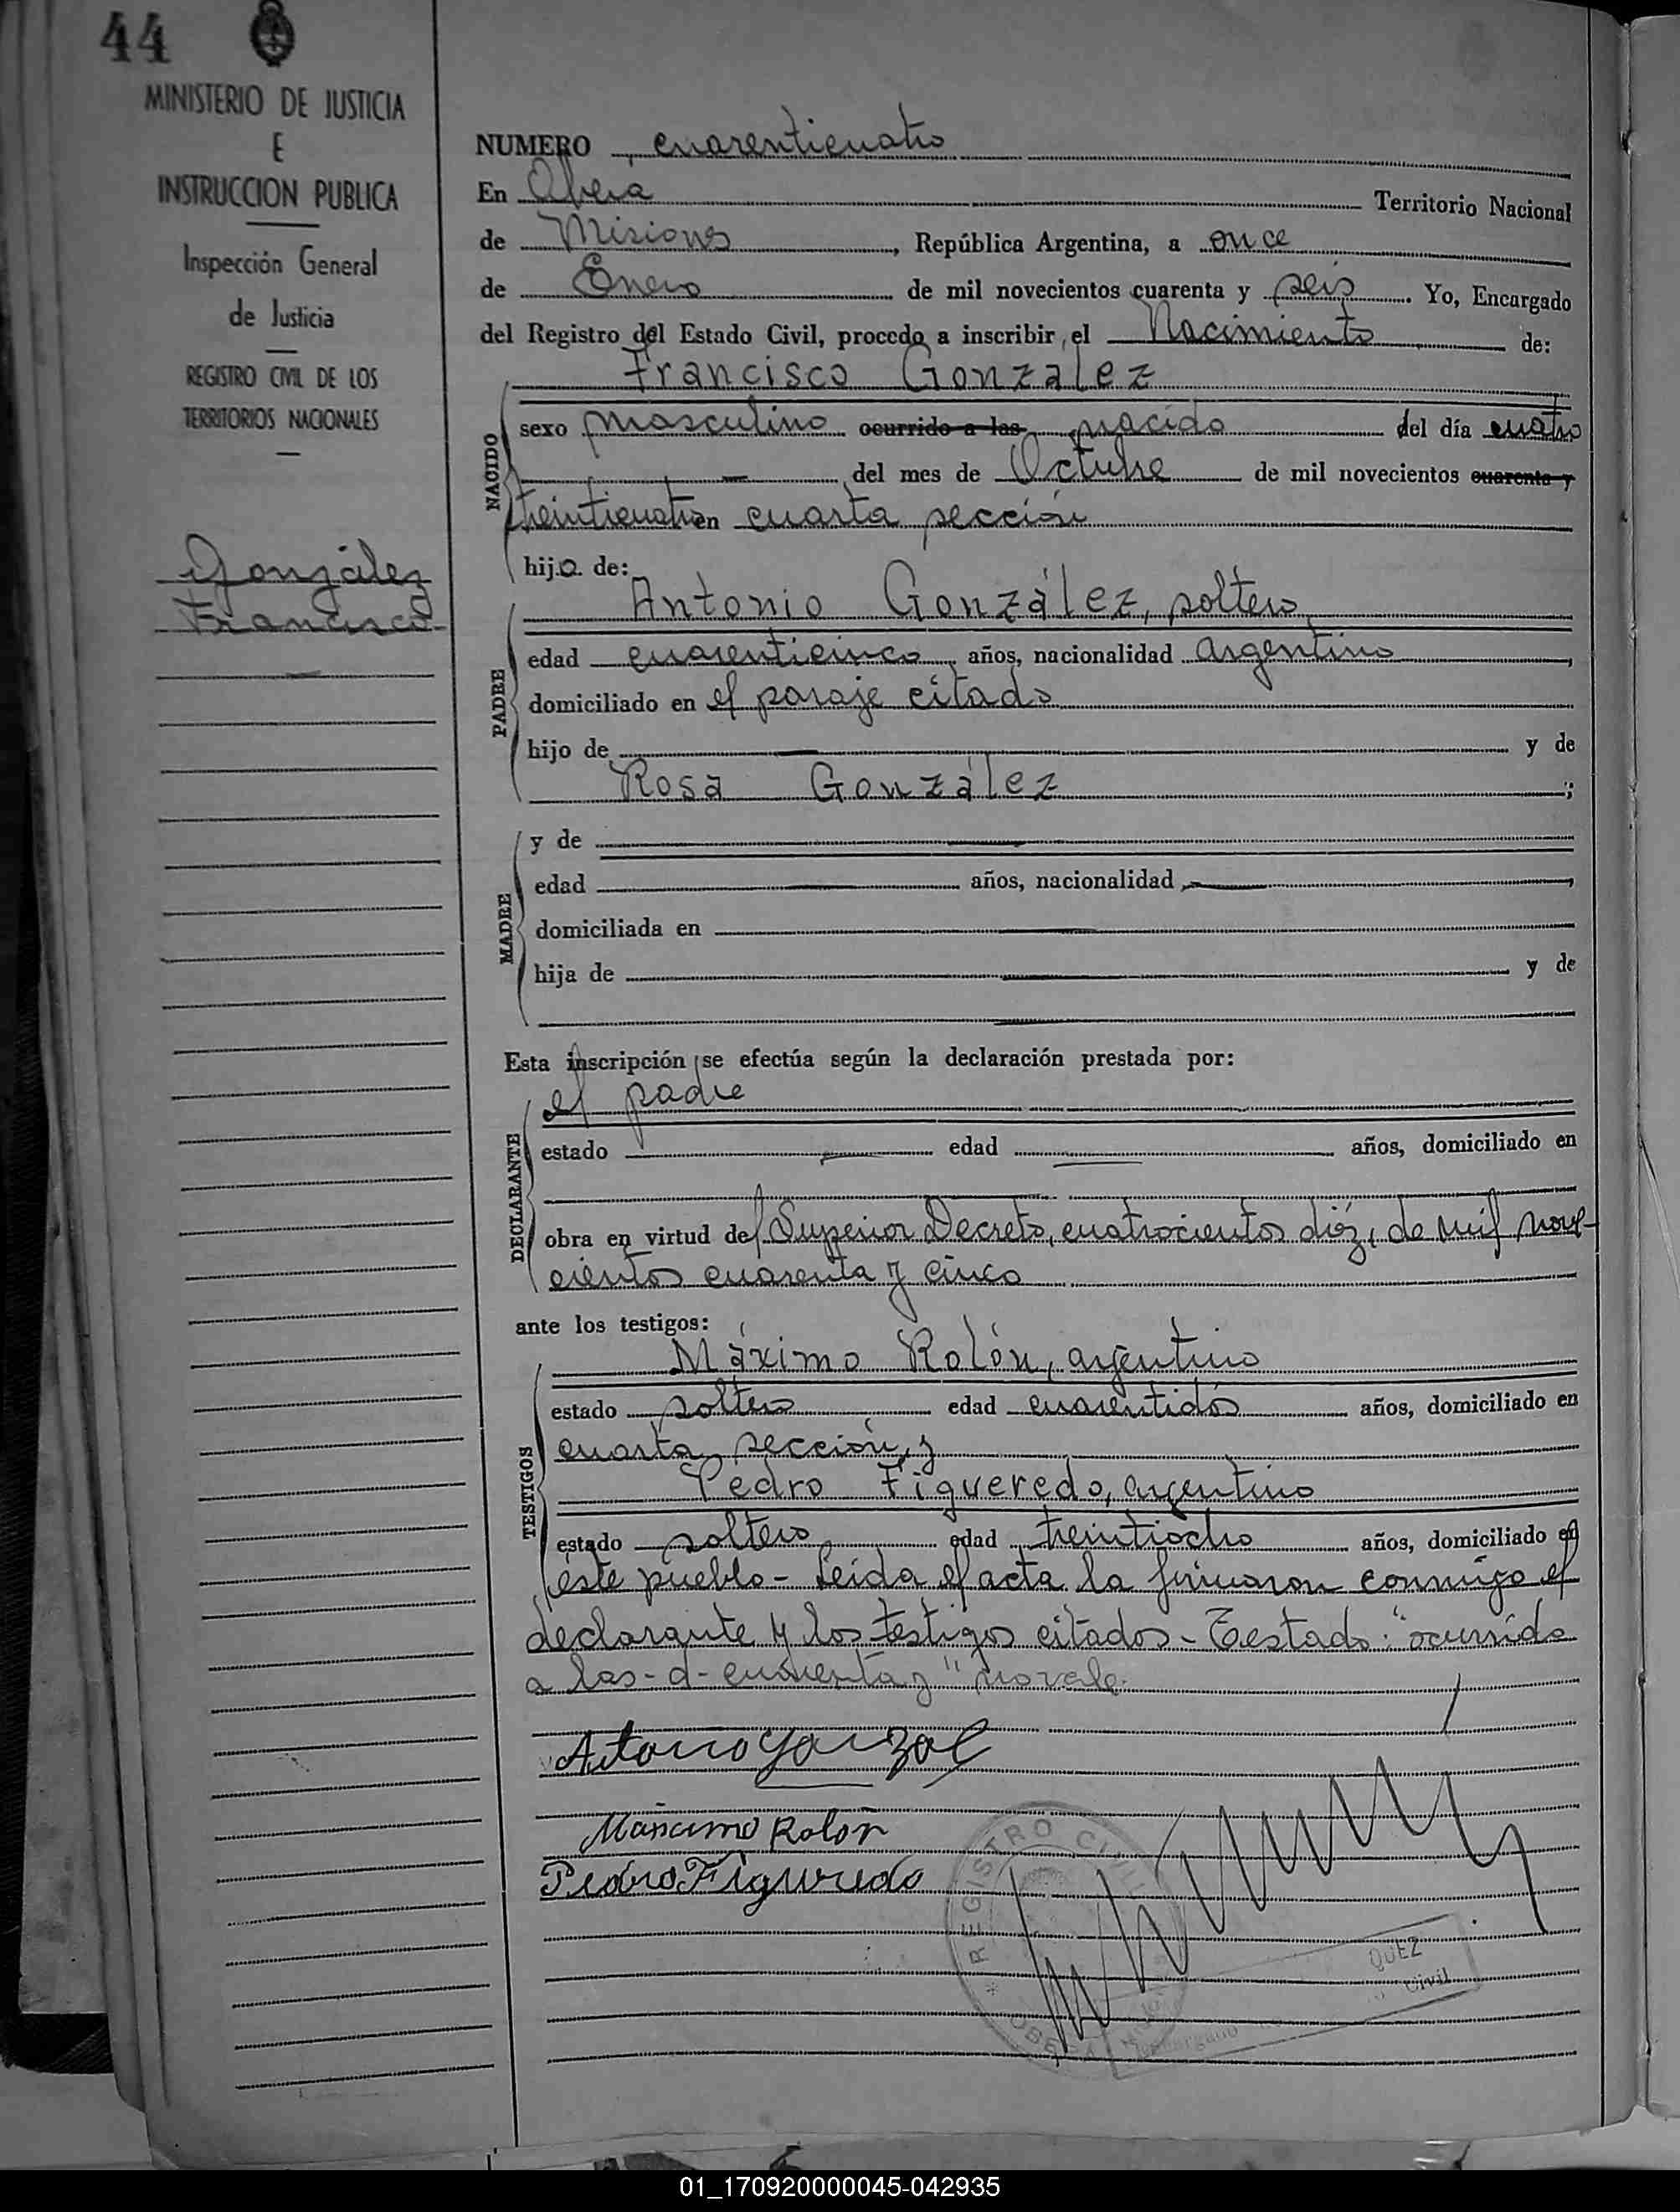 44
MINISTERIO DE JUSTICIA
E
INSTRUCCION PUBLICA
Inspección General
de Justicia
REGISTRO CIVIL DE LOS
TERRITORIOS NACIONALES
González
Francisco
NUMERO cuarenticuatro
En Oberá Territorio Nacional
de Misiones, República Argentina, a once
de Enero de mil novecientos cuarenta y seis. Yo, Encargado
del Registro del Estado Civil, procedo a inscribir el Nacimiento de:
Francisco González
NACIDO
sexo masculino ocurrido a las nacido del día cuatro
— del mes de Octubre de mil novecientos cuarenta y
treinticuatro en cuarta sección
hijo de:
Antonio González, soltero
PADRE
edad cuarenticinco años, nacionalidad Argentino
domiciliado en el paraje citado
hijo de — y de
Rosa González ;
MADRE
y de —
edad — años, nacionalidad —,
domiciliada en —
hija de — y de
—
Esta inscripción se efectúa según la declaración prestada por:
el padre
DECLARANTE
estado — edad — años, domiciliado en
obra en virtud del Superior Decreto, cuatrocientos diéz, de mil nove-
cientos cuarenta y cinco
ante los testigos:
Máximo Rolón, argentino
TESTIGOS
estado soltero edad cuarentidós años, domiciliado en
cuarta sección, y
Pedro Figueredo, argentino
estado soltero edad treintiocho años, domiciliado en
éste pueblo - Leída el acta la firmaron conmigo el
declarante y los testigos citados - Testado: "ocurrido
a las - d - cuarenta y" no vale.
Máximo Rolón
Pedro Figueredo
REGISTRO CIVIL
QUEZ
Civil
01_170920000045-042935